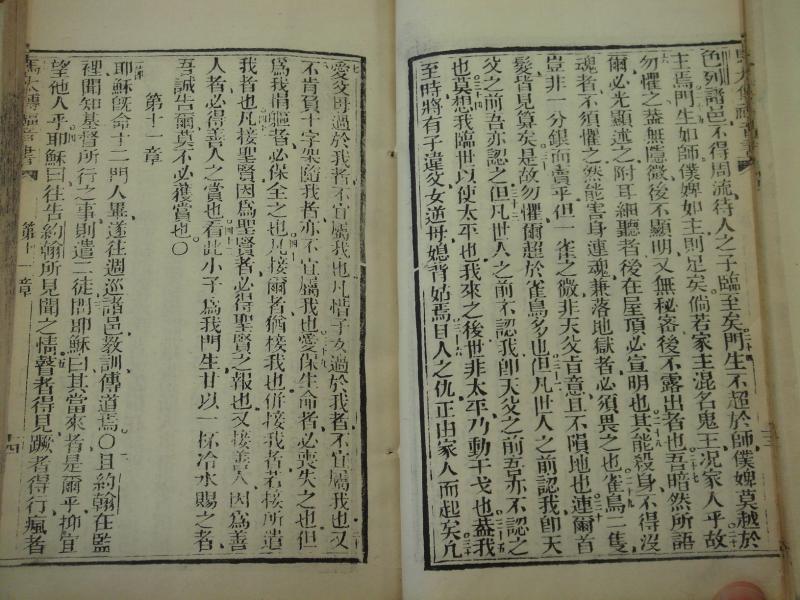 色列諸邑不得周流待人之子臨至矣門生不超於師僕婢莫越於
主焉門生如師僕婢如主則足矣倘若家主混名鬼王况家人乎故
勿懼之蓋無隱微後不顯明又無秘密後不露出者也吾暗然所語
爾必光顯述之附耳細聽者後在屋頂必宣明也其能殺身不得沒
魂者不須懼之然能害身連魂兼落地獄者必須畏之也雀鳥二隻
豈非一分銀而賣乎但一雀之微非天父肯意且不隕地也連爾首
髮皆見算矣是故勿懼爾超於雀鳥多也但凡世人之前認我卽天
父之前吾亦認之但凡世人之前不認我卽天父之前吾亦不認之
也莫想我臨世以使太平也我來之後世非太平乃動干戈也蓋我
至時將有子違父女逆母媳背姑焉且人之仇正由家人而起矣凡
愛父母過於我者不宜屬我也凡惜子女過於我者不宜屬我也又
不肯負十字架隨我者亦不宜屬我也愛保生命者必喪失之也但
爲我捐軀者必保全之也凡接爾者猶接我也併接我者若接所遣
我者也凡接聖賢因爲聖賢者必得聖賢之報也又接善人因爲善
人者必得善人之賞也看此小子爲我門生甘以一杯冷水賜之者
吾誠告爾莫不必獲賞也〇
第十一章
耶穌旣命十二門人畢遂往週巡諸邑教訓傳道焉〇且約翰在監
裡聞知基督所行之事則遣二徒問耶穌曰其當來者是爾乎抑宜
望他人乎耶穌曰往告約翰所見聞之情瞽者得見蹶者得行瘋者
馬太傳福音書
第十一章
十四